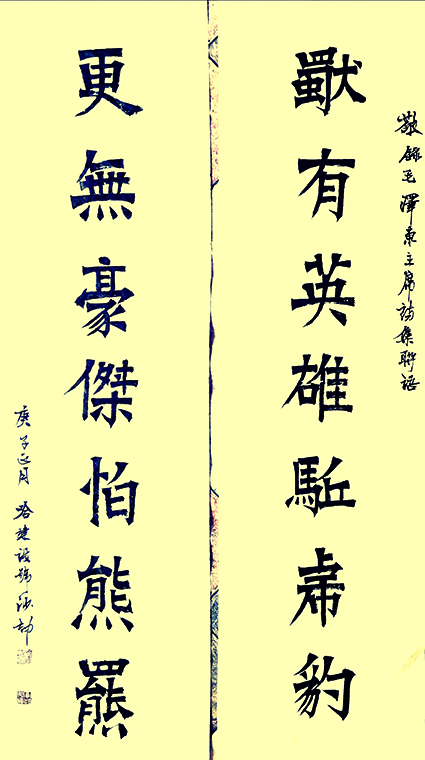 敬錄毛澤東主席詩集聯語
獨有英雄駈虎豹
更無豪傑怕熊羆
庚子正月 路建設號